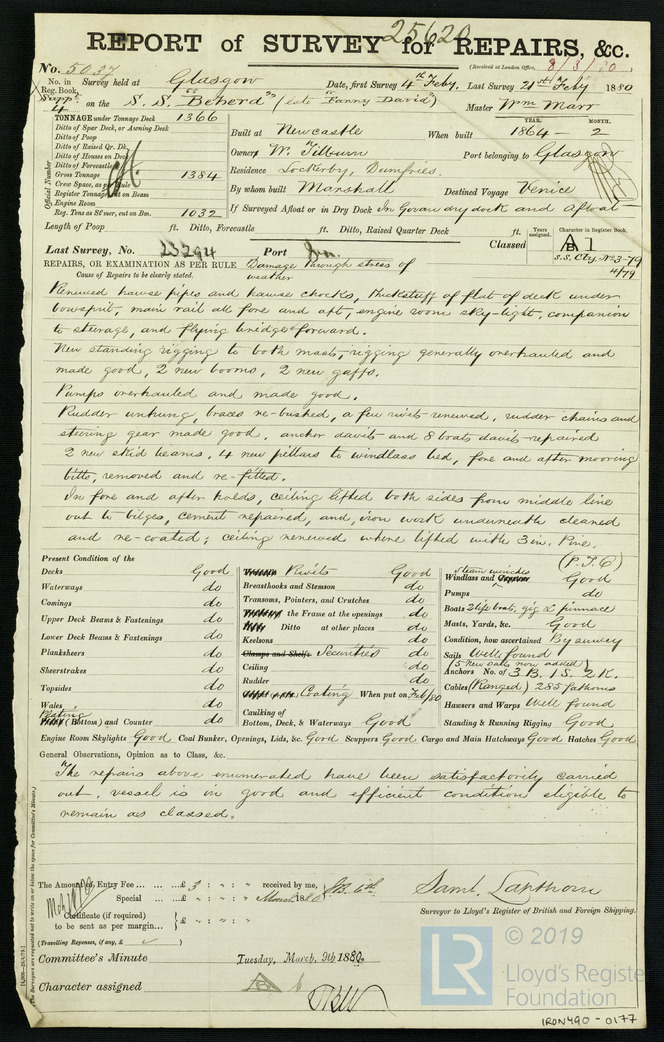 25620
REPORT of SURVEY for REPAIRS, &c.
No. 5037
(Received at London Office, 8/3/80)
No. in Reg. Book. Survey held at Glasgow Date, first Survey 4th Feby. Last Survey 21st Feby 1880
Supp. 4 on the S.S. "Beherd" (late "Fanny David") Master Wm Marr
TONNAGE under Tonnage Deck 1366
Ditto of Spar Deck, or Awning Deck
Ditto of Poop
Ditto of Raised Qr. Dk.
Ditto of Houses on Deck
Ditto of Forecastle
Gross Tonnage 1384
Crew Space, as per Rule
Register Tonnage cut on Beam
Engine Room
Reg. Tons as St'mer, cut on Bm. 1032
Official Number
Built at Newcastle When built YEAR. 1864 MONTH. 2
Owners W. Tilburn Port belonging to Glasgow
Residence Lockerby, Dumfries.
By whom built Marshall Destined Voyage Venice
If Surveyed Afloat or in Dry Dock In Govan dry dock and Afloat
Length of Poop ft. Ditto, Forecastle ft. Ditto, Raised Quarter Deck ft.
Last Survey, No. 23294 Port
Classed Years assigned. Character in Register Book. A 1
S.S. No 3-79
4/79
REPAIRS, OR EXAMINATION AS PER RULE Damage through stress of
Cause of Repairs to be clearly stated. weather
Renewed hawse pipes and hawse chocks, thickstuff of flat of deck under
bowsprit, main rail all fore and aft, engine room sky-light, companion
to steerage, and flying bridge forward.
New standing rigging to both masts, rigging generally overhauled and
made good, 2 new booms, 2 new gaffs.
Pumps overhauled and made good.
Rudder unhung, braces re-bushed, a few rivets renewed, rudder chains and
steering gear made good, anchor davits and 8 boats davits repaired
2 new skid beams, 4 new pillars to windlass bed, fore and after mooring
bitts, removed and re-fitted.
In fore and after holds, ceiling lifted both sides from middle line
out to bilges, cement repaired, and, iron work underneath cleaned
and re-coated; ceiling renewed where lifted with 3 in. Pine.
(P.T.O)
Present Condition of the
Decks Good
Waterways do
Comings do
Upper Deck Beams & Fastenings do
Lower Deck Beams & Fastenings do
Planksheers do
Sheerstrakes do
Topsides do
Wales do
Plating (Bottom) and Counter do
Rivits Good
Breasthooks and Stemson do
Transoms, Pointers, and Crutches do
the Frame at the openings do
Ditto at other places do
Keelsons do
Clamps and Shelfs Securities do
Ceiling do
Rudder do
Coating When put on Feb/80
Caulking of Bottom, Deck, & Waterways Good
Windlass and steam winches Good
Pumps do
Boats 2 life boats, gig & pinnace
Masts, Yards, &c. Good
Condition, how ascertained By survey
Sails Well found
(5 New sails now added)
Anchors No. of 3 B. 1 S. 2 K.
Cables (Ranged) 285 fathoms
Hawsers and Warps Well found
Standing & Running Rigging Good
Engine Room Skylights Good Coal Bunker, Openings, Lids, &c. Good Scuppers Good Cargo and Main Hatchways Good Hatches Good
General Observations, Opinion as to Class, &c.
The repairs above enumerated have been satisfactorily carried
out, vessel is in good and efficient condition eligible to
remain as classed.
The Amount of Entry Fee ... ... ... £ 3 : " : " received by me,
Special ... ... £ " : " : " March 1880
Certificate (if required) to be sent as per margin... £ " : " : "
(Travelling Expenses, if any, £ )
Saml. Lapthorn
Surveyor to Lloyd's Register of British and Foreign Shipping.
Committee's Minute Tuesday, March, 9th 1880.
Character assigned
© 2019
LR
Lloyd's Register
Foundation
IRON490-0177